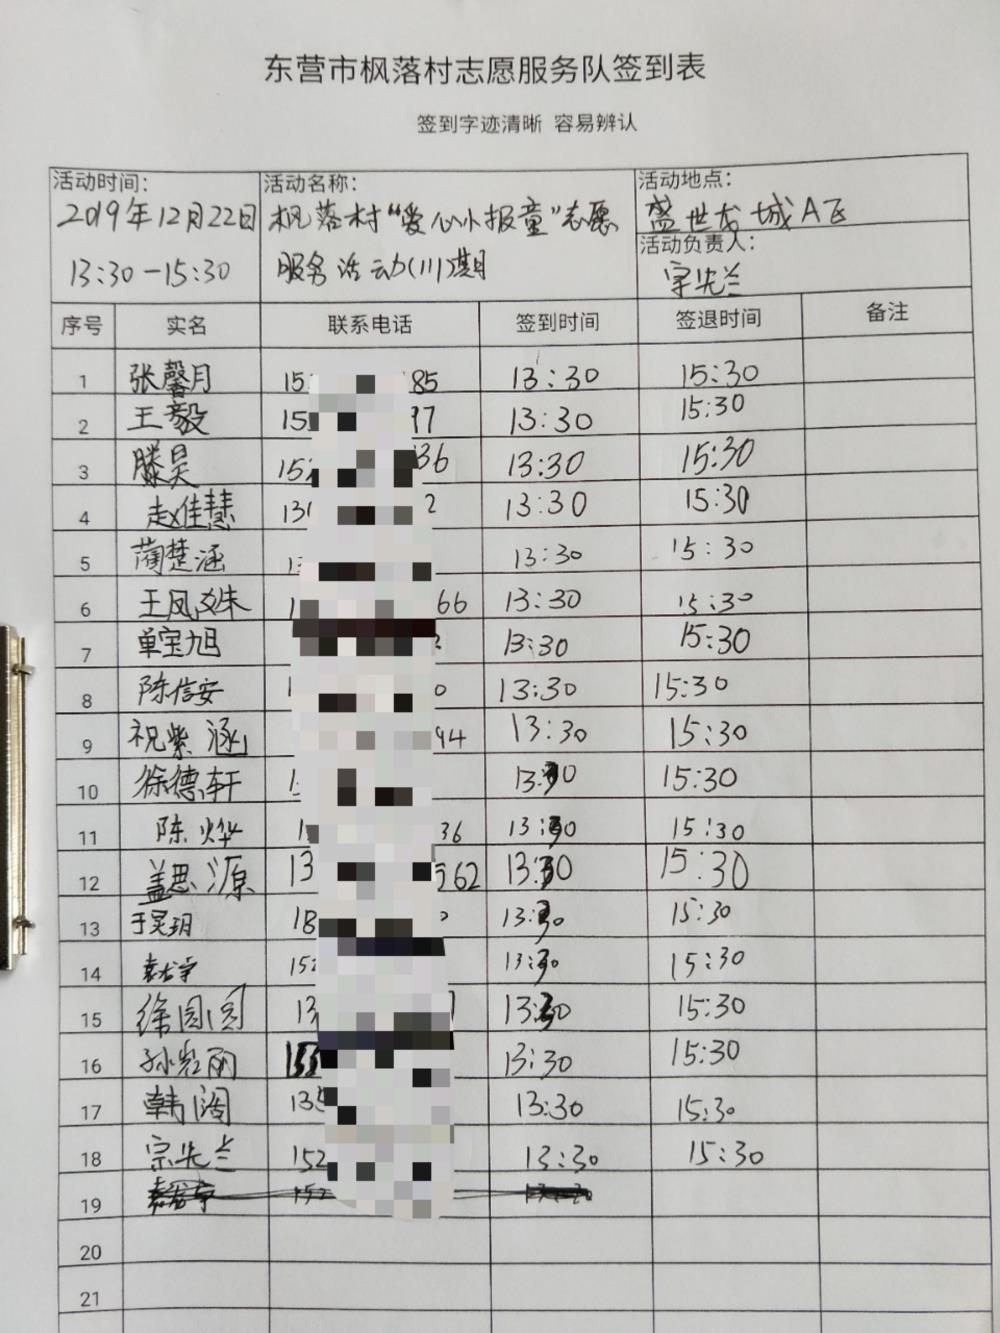 东营市枫落村志愿服务队签到表
签到字迹清晰 容易辨认
活动时间: 活动名称: 活动地点:
2019年12月22日 枫落村“爱心小报童”志愿 盛世龙城A区
13:30-15:30 服务活动(111)期 活动负责人:
宗先兰
序号 实名 联系电话 签到时间 签退时间 备注
1 张馨月 15 85 13:30 15:30
2 王毅 15 97 13:30 15:30
3 滕昊 152 36 13:30 15:30
4 赵佳慧 13 2 13:30 15:30
5 蔺楚涵 13 13:30 15:30
6 王凤姝 1 66 13:30 15:30
7 单宝旭 13:30 15:30
8 陈信安 1 0 13:30 15:30
9 祝紫涵 94 13:30 15:30
10 徐德轩 1 13:30 15:30
11 陈烨 1 36 13:30 15:30
12 盖思源 13 562 13:30 15:30
13 于昊玥 18 13:30 15:30
14 袁龙宇 152 13:30 15:30
15 徐圆圆 13 13:30 15:30
16 孙岩丽 13:30 15:30
17 韩阔 135 13:30 15:30
18 宗先兰 152 13:30 15:30
19 152
20
21